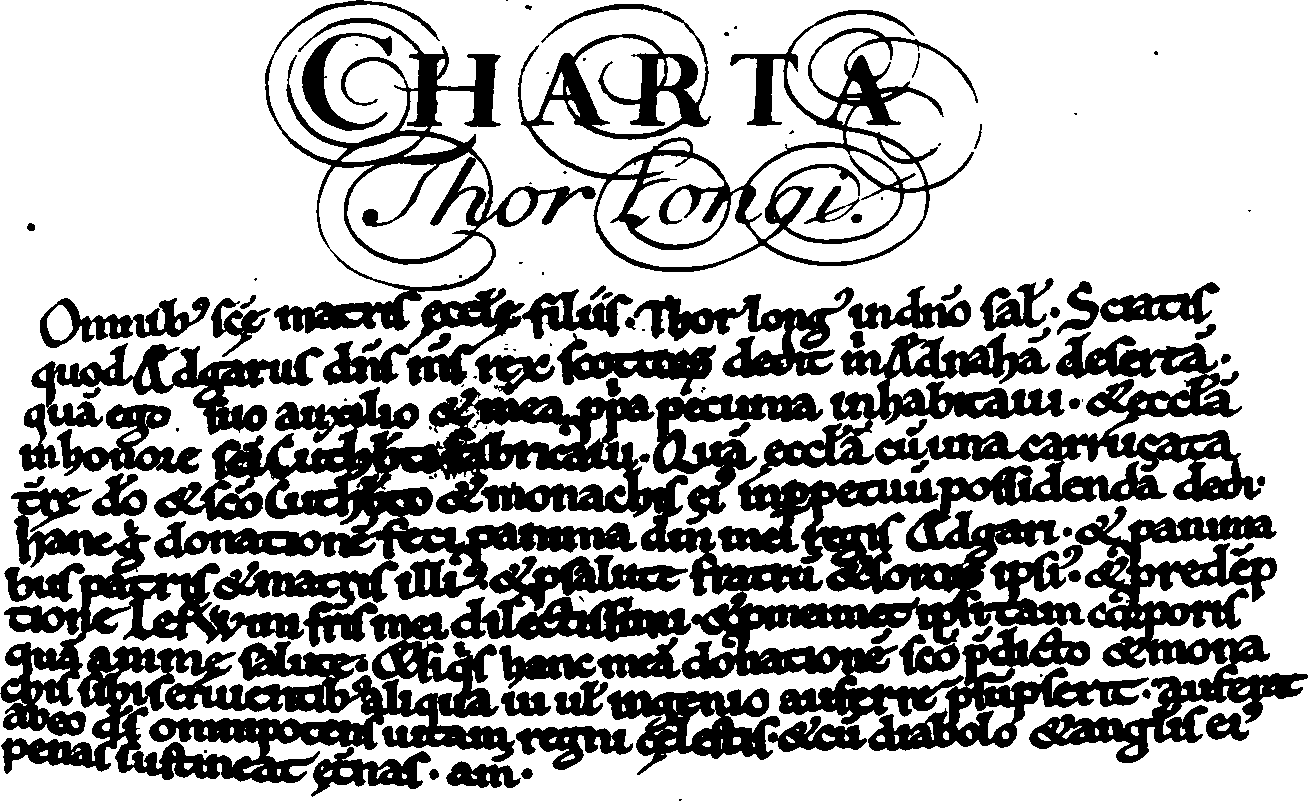 CHARTA
Thor Longi.
Omnib' scę matris ęccłe filiis · Thor long' in dño sał · Sciatis
quod Ædgarus dñs ms rex scottoꝝ dedit m̄ Ædnahā desertā ·
quā ego suo auxilio & mea ppa pecunia inhabitaui · & ęccłā
in honore sci Cuthb̄ti fabricaui · Quā ęccłā cū una carrucata
tr̄e dō & scō Cuthb̄to & monachis ei' inppetuū possidendā dedi ·
hanc g̊ donationē feci p anima dm̄ mei regis Ædgari · & p anima
bus patris & matris illi' · & p salute fratrū & soroꝝ ipsi' · & p redēp
tione Lefwini fr̄is mei dilectissimi · & p meimet ipsi tam corporis
quā animę salute · & siq's hanc meā donationē scō p̄dicto & mona
chis sibi seruientib' aliqua ui uł ingenio auferre p̄supserit · auferat
abeo dś omnipotens uitam regni cęlestis · & cū diabolo & anglis ei'
penas sustineat ęt̄nas · am̄ ·